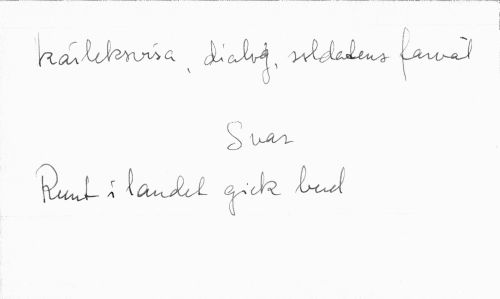 kärleksvisa, dialog, soldatens farväl
Svar
Runt i landet gick bud